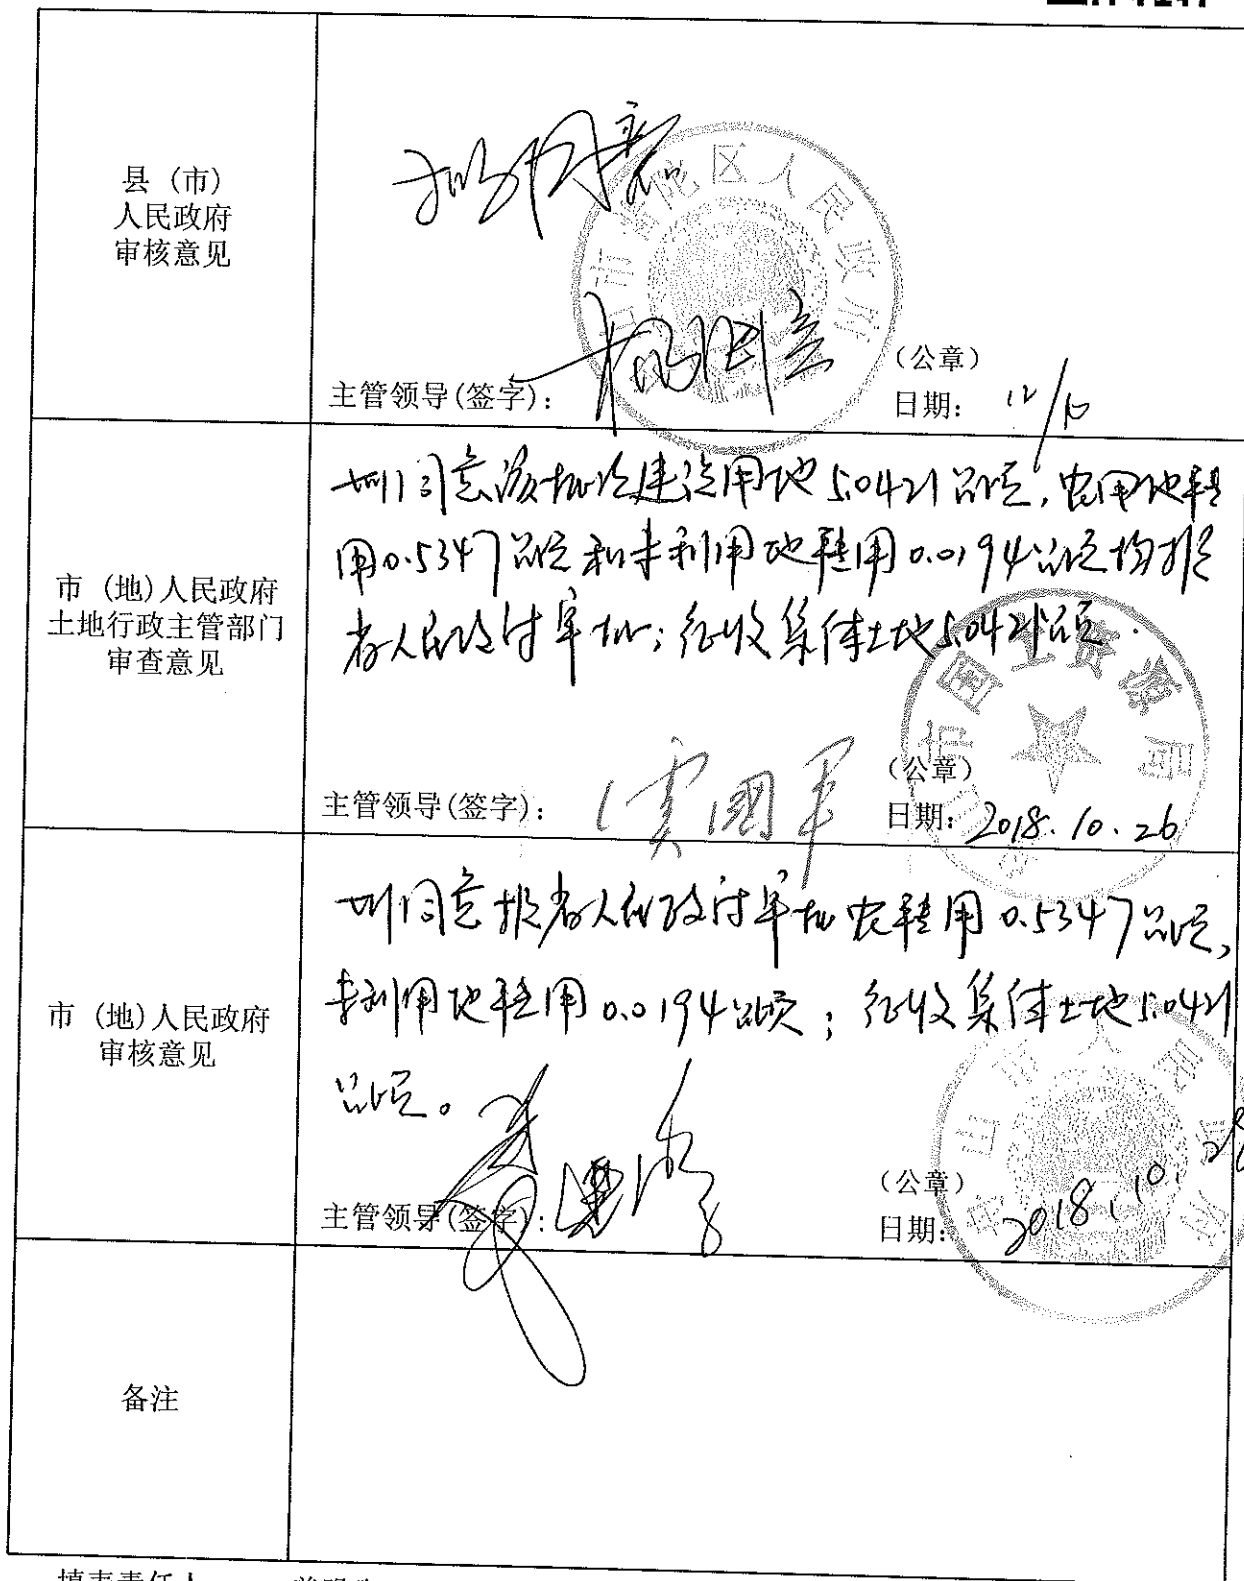 县（市）
人民政府
审核意见
拟同意
区人民政府
主管领导(签字)：
（公章）
日期： 12/10
市（地）人民政府
土地行政主管部门
审查意见
拟同意该批次建设用地5.0421公顷，农用地转
用0.5347公顷和未利用地转用0.0194公顷均报
省人民政府审批；征收集体土地5.0421公顷.
市国土资源局
主管领导(签字)：
（公章）
日期： 2018.10.26
市（地）人民政府
审核意见
拟同意报省人民政府审批农转用0.5347公顷，
未利用地转用0.0194公顷；征收集体土地5.0421
公顷。
山市人民政府
主管领导(签字)：
（公章）
日期： 2018.10.
备注
填表责任人